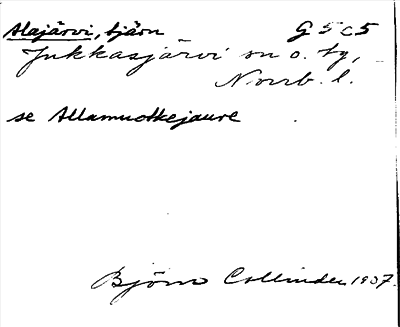 Alajärvi, tjärn G 5 c 5
Jukkasjärvi sn o. tg,
Norrb. l.
se Allamuotkejaure
Björn Collinder 1937.